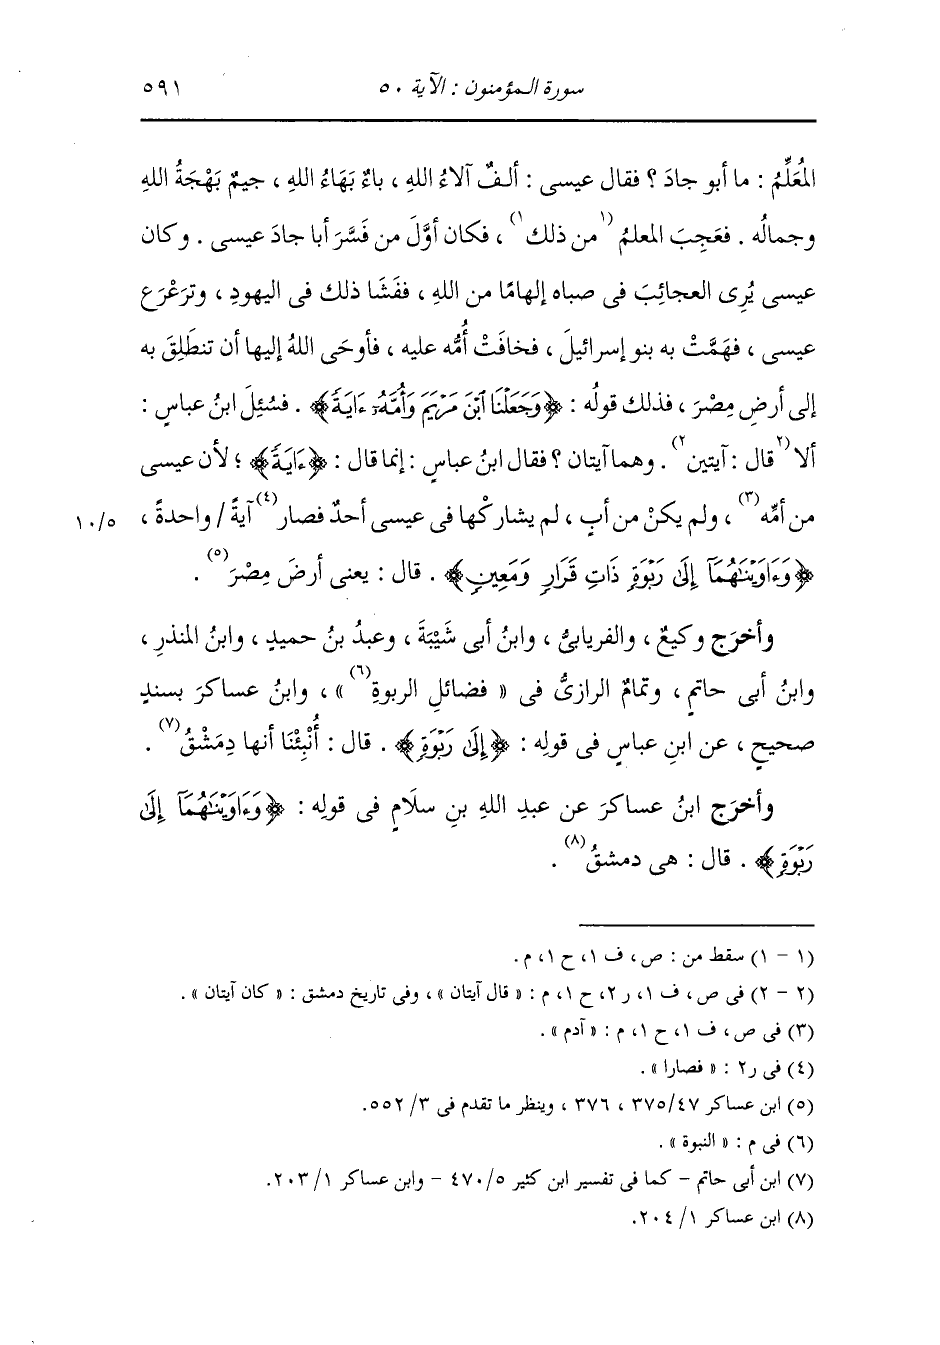 سورة المؤمنون : الآية ٥٠ ٥٩١
المُعَلِّمُ : ما أبو جادَ ؟ فقال عيسى : ألفٌ آلاءُ اللهِ ، باءٌ بَهَاءُ اللهِ ، جيمٌ بَهْجَةُ اللهِ
وجمالُه . فعَجِبَ المعلمُ (١من ذلك١) ، فكان أوَّلَ من فَسَّرَ أبا جادَ عيسى . وكان
عيسى يُرِى العجائِبَ فى صباه إلهامًا من اللهِ ، ففَشَا ذلك فى اليهودِ ، وترَعْرَع
عيسى ، فهَمَّتْ به بنو إسرائيلَ ، فخافَتْ أُمُّه عليه ، فأوحَى اللهُ إليها أن تنطَلِقَ به
إلى أرضِ مِصْرَ ، فذلك قولُه : ﴿وَجَعَلْنَا ٱبْنَ مَرْيَمَ وَأُمَّهُۥٓ ءَايَةً﴾ . فسُئِلَ ابنُ عباسٍ :
ألا (٢قال : آيتين٢) . وهما آيتان ؟ فقال ابنُ عباسٍ : إنما قال : ﴿ءَايَةً﴾ ؛ لأن عيسى
من أمِّه (٣) ، ولم يكنْ من أبٍ ، لم يشاركْها فى عيسى أحدٌ فصار (٤) آيةً / واحدةً ، ١٠/٥
﴿وَءَاوَيْنَٰهُمَآ إِلَىٰ رَبْوَةٍ ذَاتِ قَرَارٍ وَمَعِينٍ﴾ . قال : يعنى أرضَ مِصْرَ (٥) .
وأخرَج وكيعٌ ، والفريابىُّ ، وابنُ أبى شَيْبَةَ ، وعبدُ بنُ حميدٍ ، وابنُ المنذرِ ،
وابنُ أبى حاتمٍ ، وتمامٌ الرازىُّ فى « فضائلِ الربوةِ (٦) » ، وابنُ عساكرَ بسندٍ
صحيحٍ ، عن ابنِ عباسٍ فى قولِه : ﴿إِلَىٰ رَبْوَةٍ﴾ . قال : أُنْبِئْنَا أنها دِمَشْقُ (٧) .
وأخرَج ابنُ عساكرَ عن عبدِ اللهِ بنِ سلَامٍ فى قولِه : ﴿وَءَاوَيْنَٰهُمَآ إِلَىٰ
رَبْوَةٍ﴾ . قال : هى دمشقُ (٨) .
(١ - ١) سقط من : ص ، ف ١، ح ١، م .
(٢ - ٢) فى ص ، ف ١، ر ٢، ح ١، م : « قال آيتان » ، وفى تاريخ دمشق : « كان آيتان » .
(٣) فى ص ، ف ١، ح ١، م : « آدم » .
(٤) فى ر٢ : « فصارا » .
(٥) ابن عساكر ٣٧٥/٤٧ ، ٣٧٦ ، وينظر ما تقدم فى ٥٥٢/٣.
(٦) فى م : « النبوة » .
(٧) ابن أبى حاتم - كما فى تفسير ابن كثير ٤٧٠/٥ - وابن عساكر ٢٠٣/١.
(٨) ابن عساكر ٢٠٤/١.